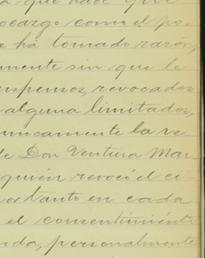 que hace que
ocargo como el po
e ha tomado razón,
mente sin que le
supremos, revocados
alguna limitados,
unicamente la ve
de Don Ventura Mar
quién revocó el ci
tanto en cada
el consentimiento
nda, personalmente